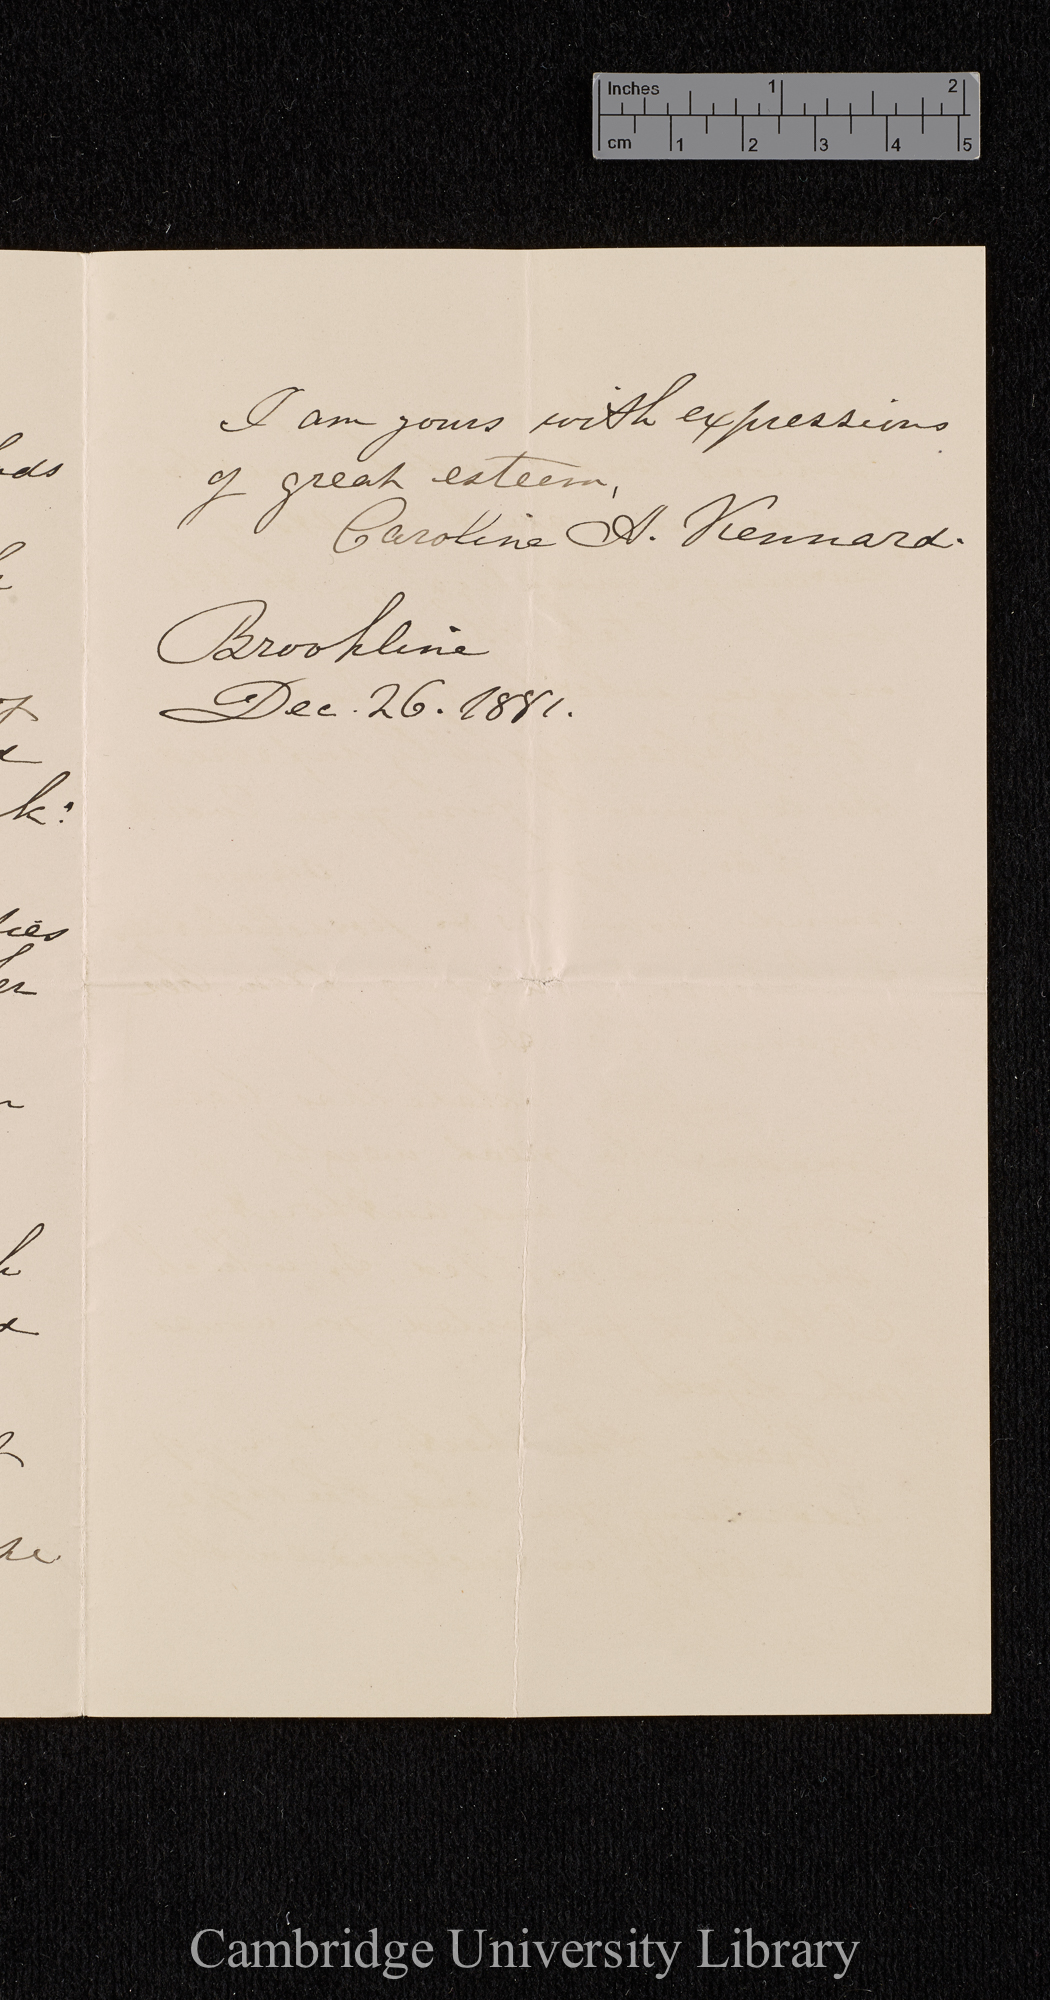 Inches 1 2
cm 1 2 3 4 5
I am yours with expressions
of great esteem,
Caroline A. Kennard.
Brookline
Dec. 26. 1881.
Cambridge University Library